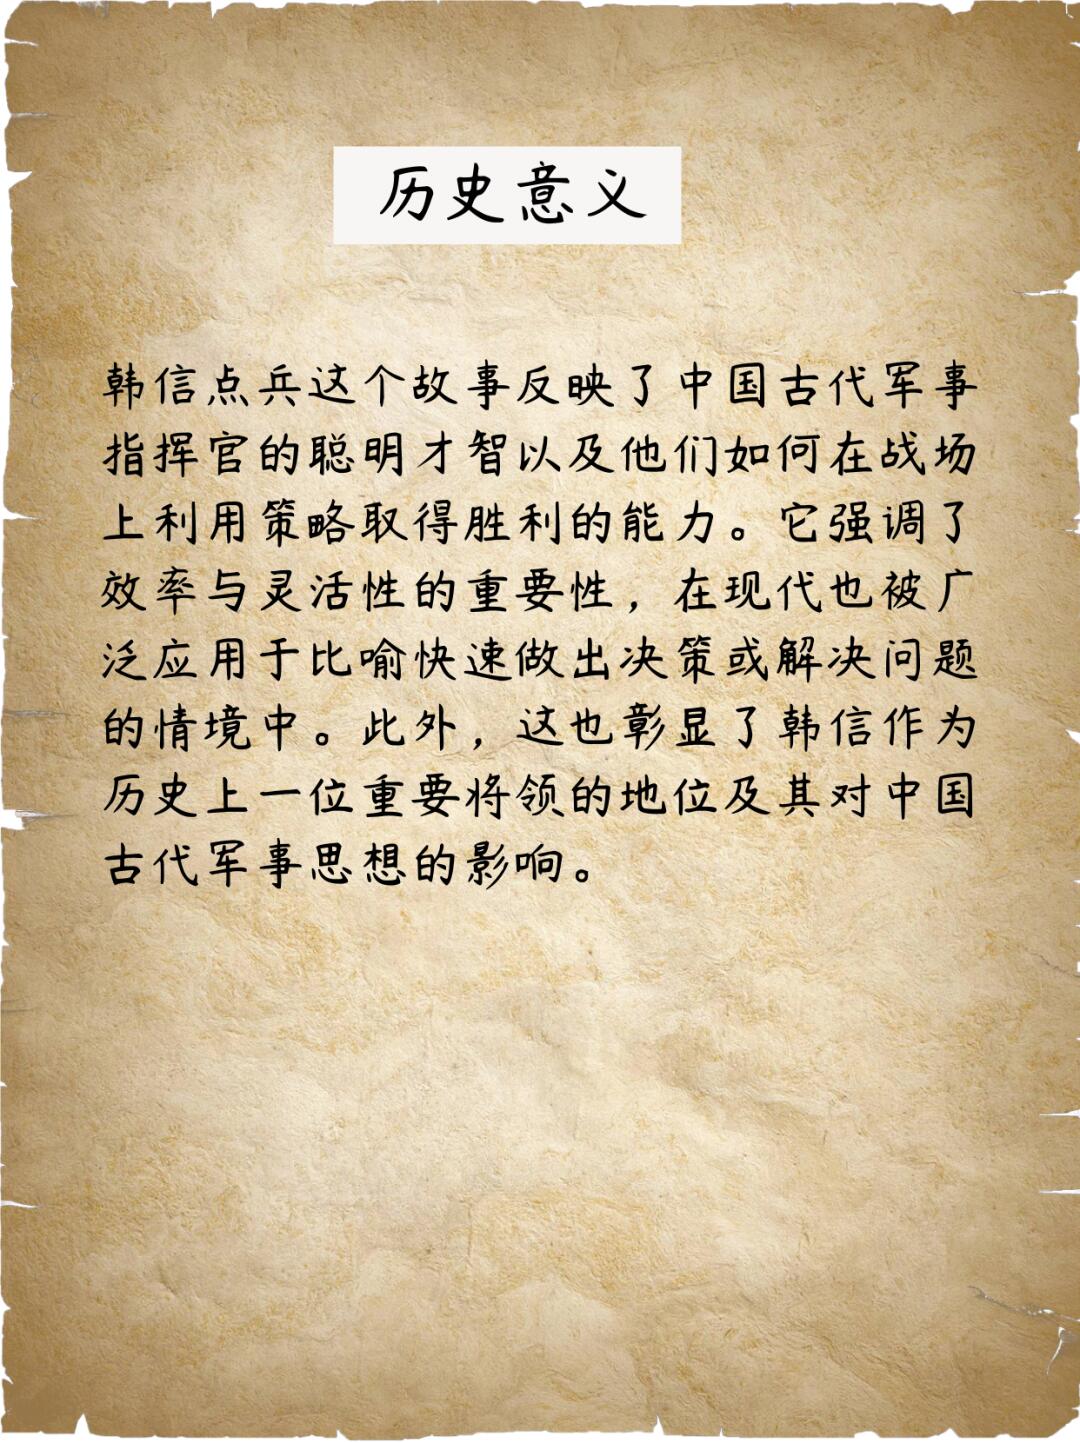 历史意义
韩信点兵这个故事反映了中国古代军事
指挥官的聪明才智以及他们如何在战场
上利用策略取得胜利的能力。它强调了
效率与灵活性的重要性，在现代也被广
泛应用于比喻快速做出决策或解决问题
的情境中。此外，这也彰显了韩信作为
历史上一位重要将领的地位及其对中国
古代军事思想的影响。